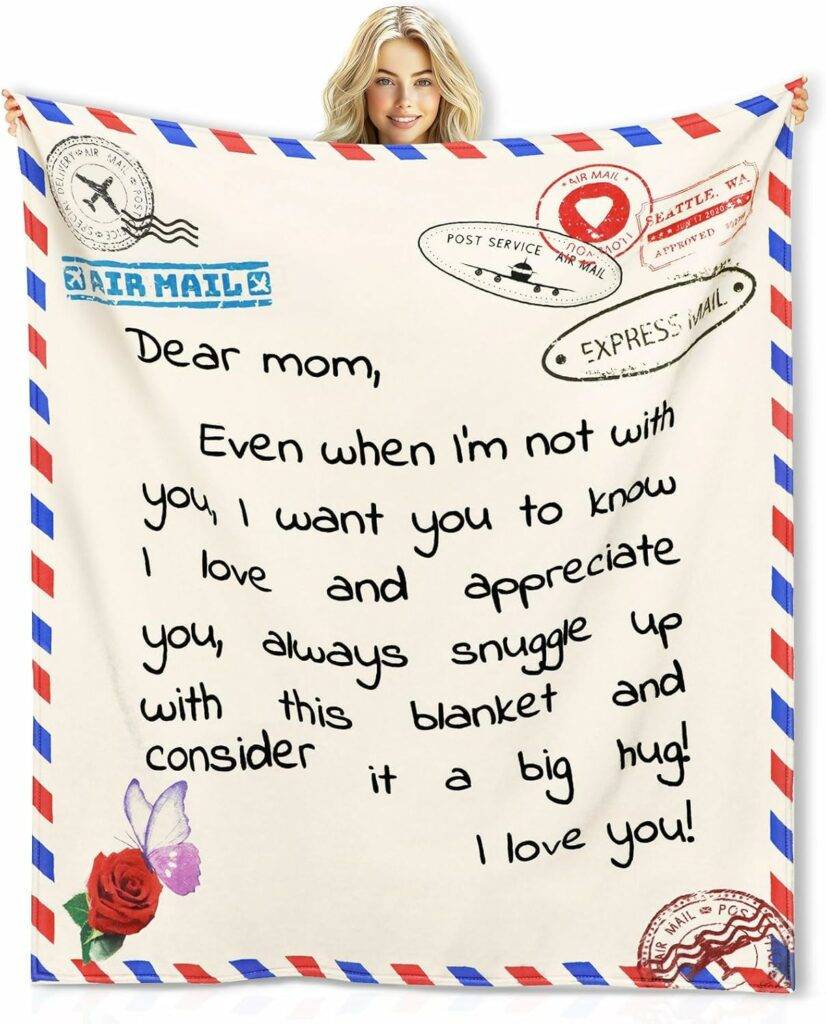 SPECIAL DELIVERY AIR MAIL POST
AIR MAIL
POST SERVICE AIR MAIL
AIR MAIL
SEATTLE, WA
JUN 17 2020
APPROVED
EXPRESS MAIL
Dear mom,
Even when I'm not with
you, I want you to know
I love and appreciate
you, always snuggle up
with this blanket and
consider it a big hug!
I love you!
AIR MAIL